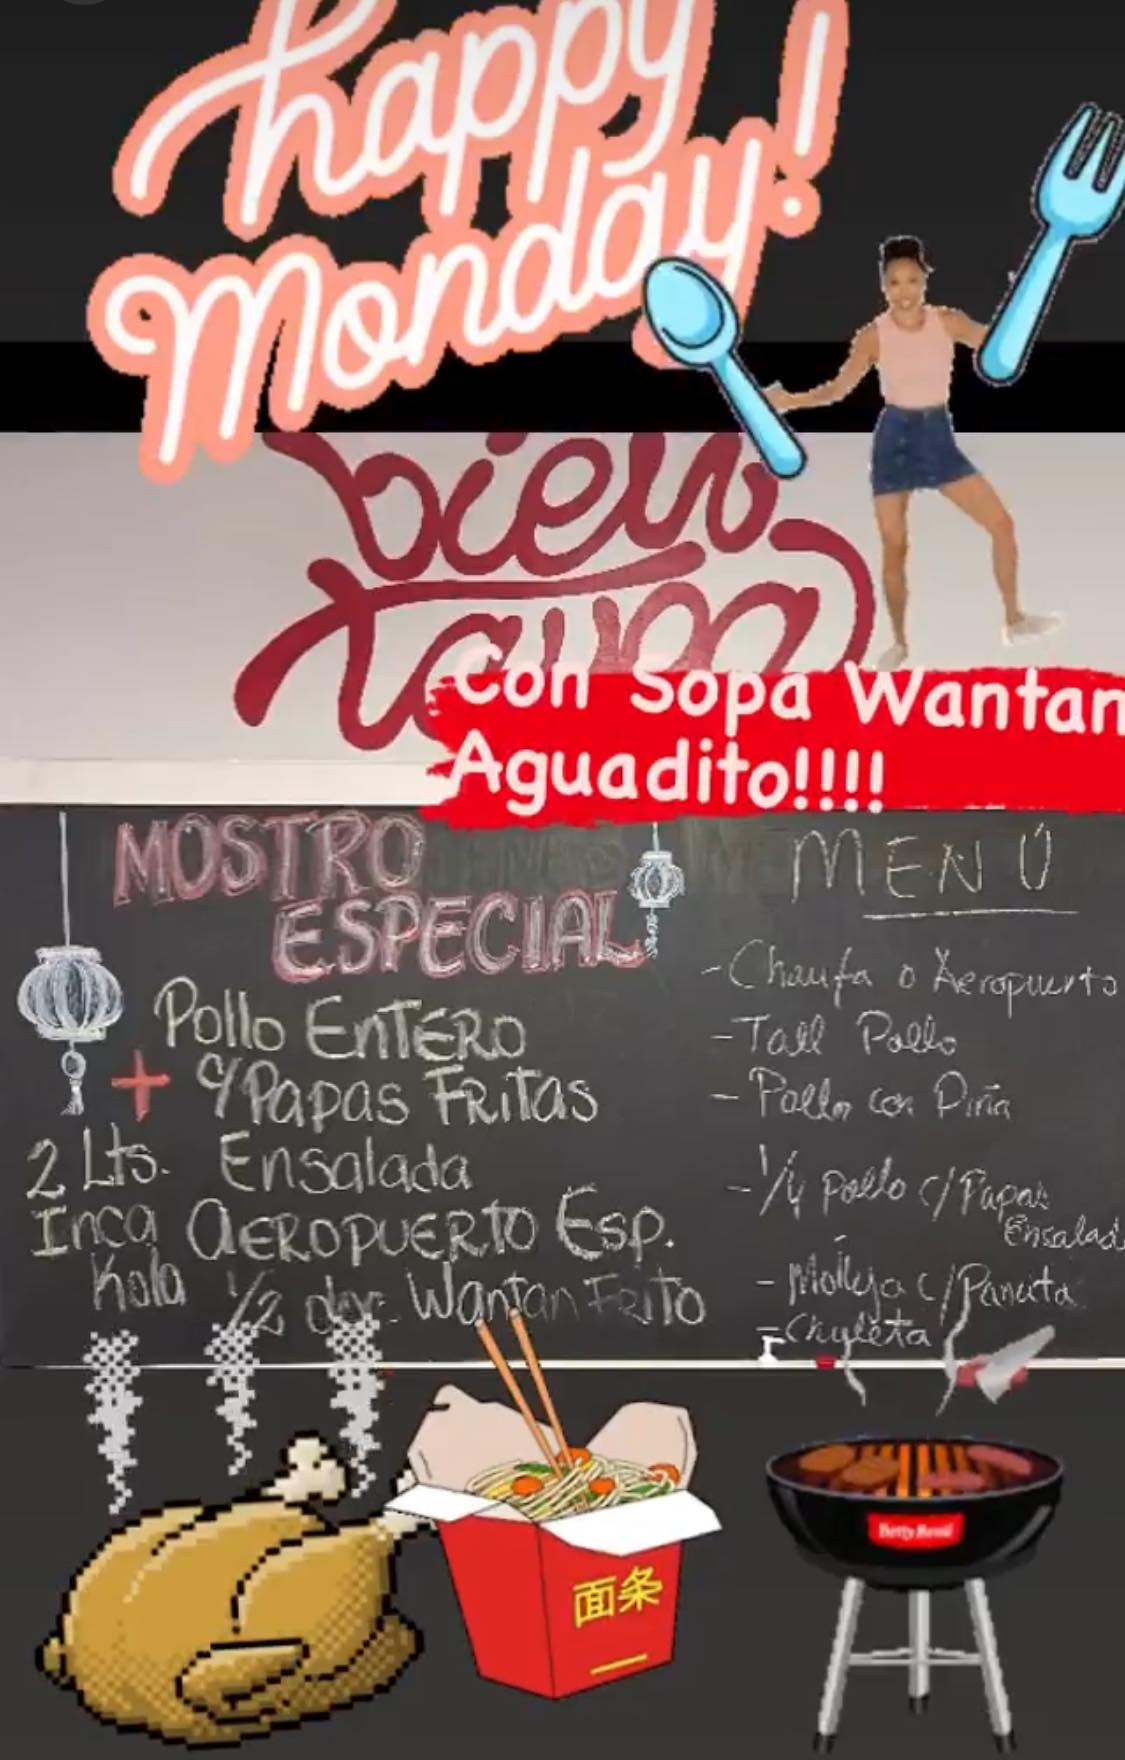 happy
Monday!
bien
Taypa
Con Sopa Wantan
Aguadito!!!!
MOSTRO
ESPECIAL
Pollo ENTERO
+ c/Papas FRITAS
2 Lts. Ensalada
Inca AEROPUERTO Esp.
Kola 1/2 doc. Wantan Frito
MENÚ
- Chaufa o Aeropuerto
- Tall Pollo
- Pollo con Piña
- 1/4 pollo c/Papas
Ensalad
- Molleja c/Pancita
- Chuleta
面条
Betty Bossi